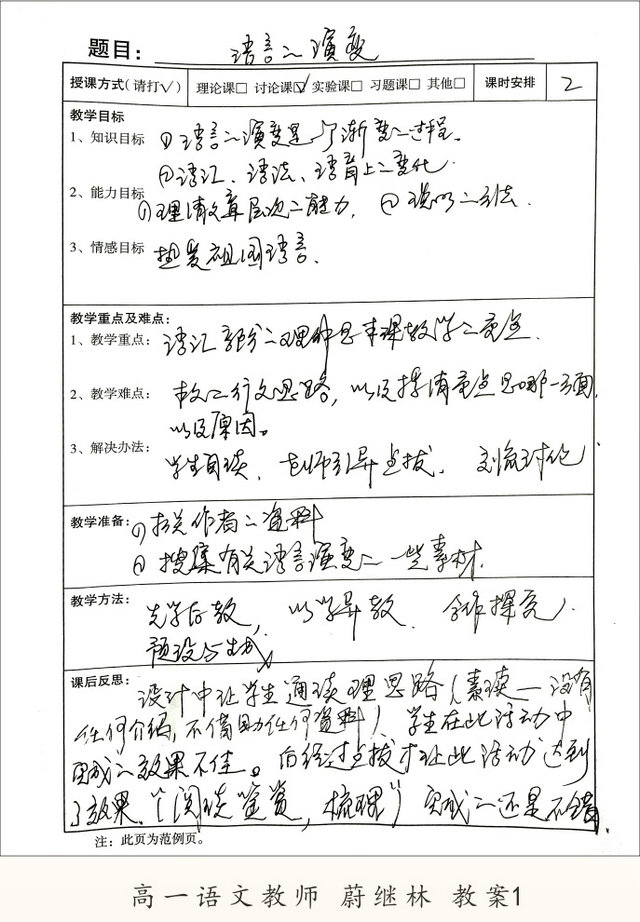 题目：语言的演变
授课方式（请打√） 理论课□ 讨论课☑ 实验课□ 习题课□ 其他□ 课时安排 2
教学目标
1、知识目标 ①语言的演变是个渐变的过程。
②语汇、语法、语音上的变化.
2、能力目标 ①理清文章层次的能力, ②说明的方法.
3、情感目标 热爱祖国语言.
教学重点及难点：
1、教学重点：语汇部分的理解是本课教学的重点.
2、教学难点：本文的行文思路, 以及搞清重点是哪一方面,
以及原因。
3、解决办法：学生自读、老师引导点拨、交流讨论
教学准备：①相关作者的资料
②搜集有关语言演变的一些素材.
教学方法：先学后教, 以学导教. 合作探究.
预设与生成
课后反思：设计中让学生通读理思路(素读—没有
任何介绍,不借助任何资料) 学生在此活动中
完成的效果不佳。后经过点拨才让此活动达到
了效果.“(阅读鉴赏,梳理”)完成的还是不错
注：此页为范例页。
高一语文教师 蔚继林 教案1